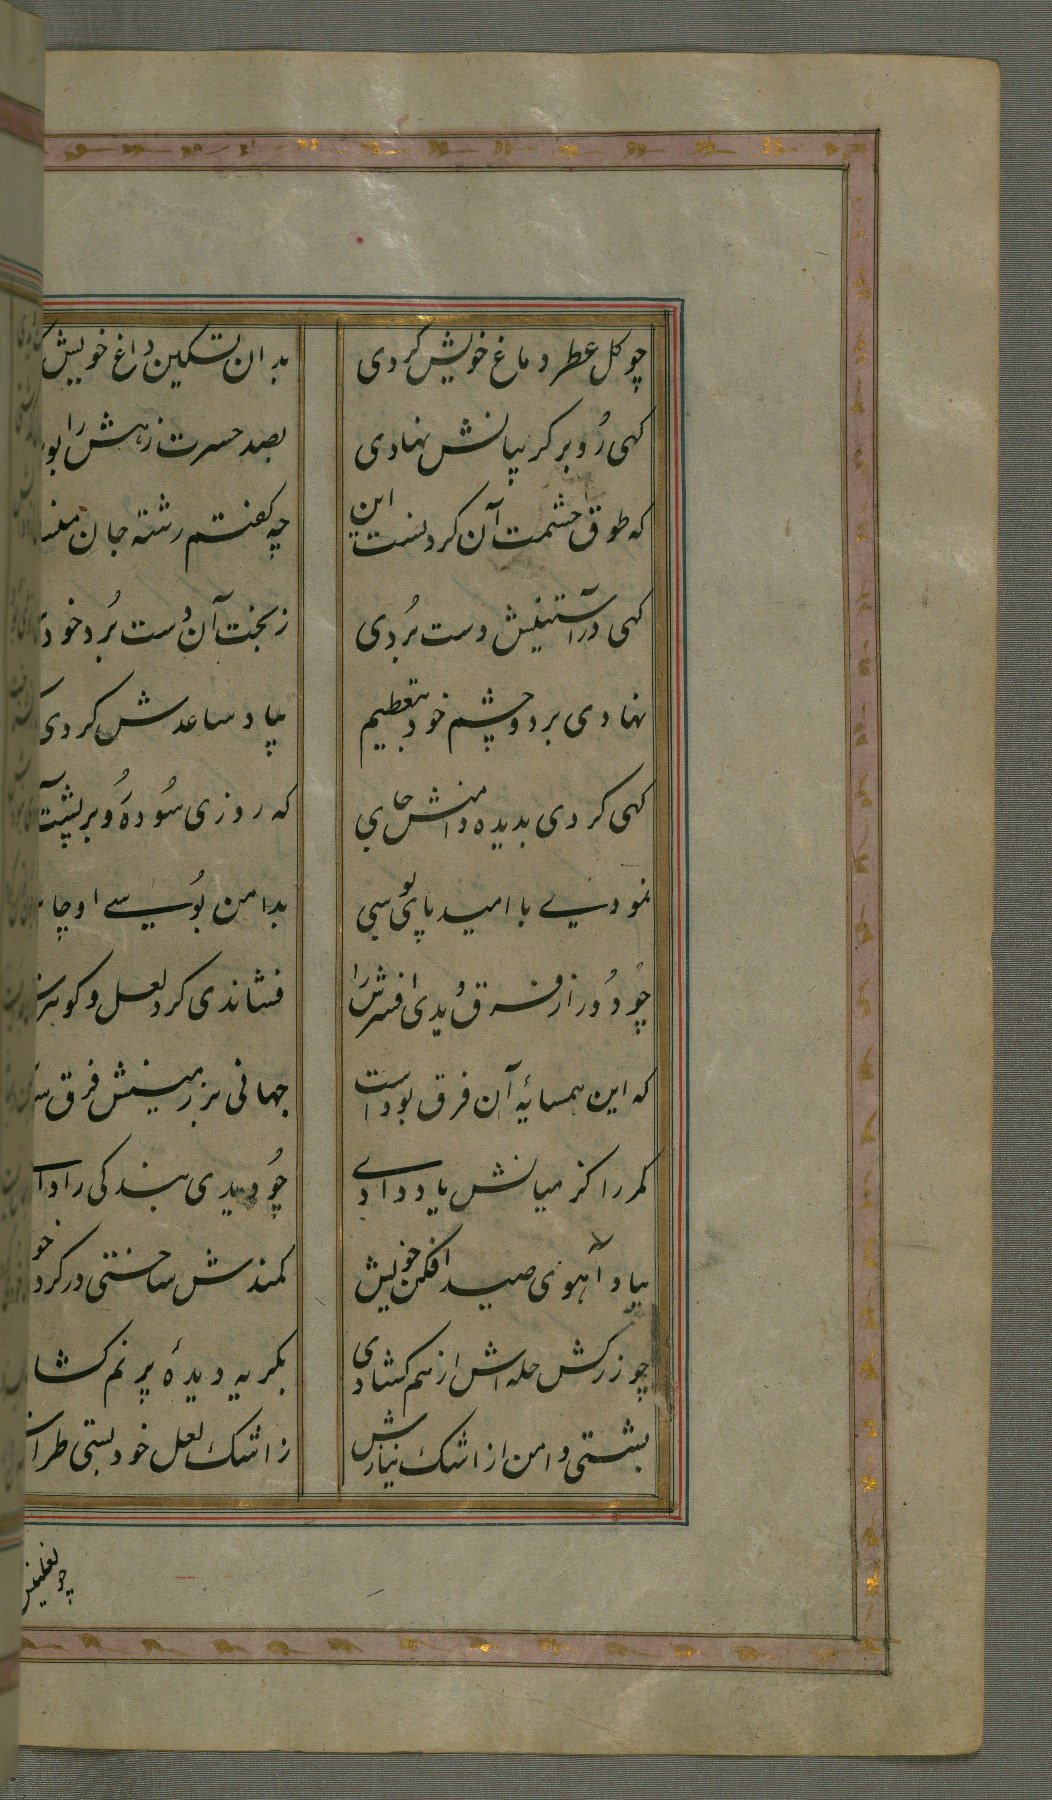 چو کل عطر دماغ خویش کردی بدان تسکین داغ خویش
کهی رُو بر کریبانش نهادی بصد حسرت زهش را
که طوق حشمت آن کردنست این چه کفتم رشته جان
کهی در آستینش دست بُردی ز بخت آن دست بُرد خود
نهادی بر دو چشم خود بتعظیم بیاد ساعدش کردی
کهی کردی بدیده دامنش جای که روزی سُوده رُو بر پشت
نمودی با امید پای بوسی بدامن بُوسی او
چُو دُور از فرق دیدی افسرش را فشاندی کرد لعل و کوهرش
که این همسایهٔ آن فرق بود است جهانی بر زمینش فرق
کمر را کز میانش یاد دادی چُو دیدی بندکی را
بیاد آهوی صید افکن خویش کمندش ساختی در کردن
چو زرکش حله اش از هم کشادی بکریه دیدهٔ پر نم
بشستی دامن از اشک نیازش ز اشک لعل خود بستی
چو نعلینش